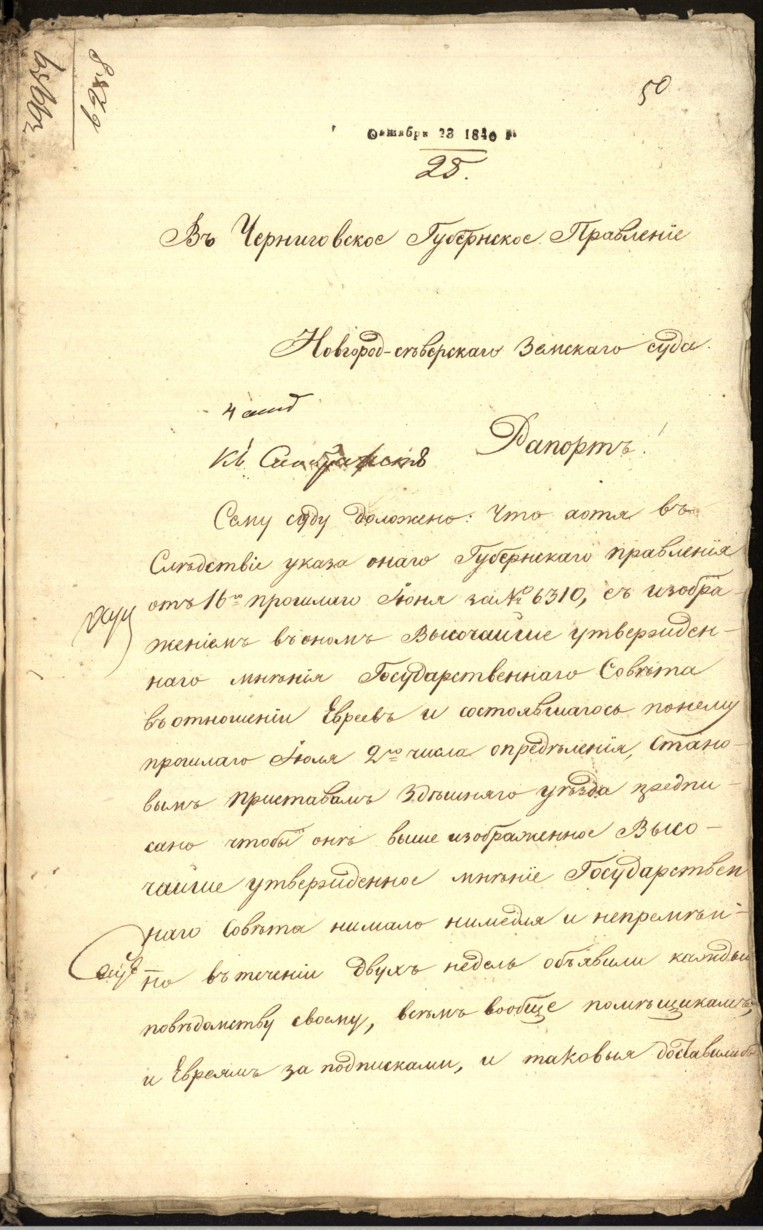 39659
6288
50
Октября 23 1840 г
25.
Въ Черниговское Губернское Правленіе
Новгород-северскаго Земскаго суда.
Рапортъ!
Сему суду доложено: Что хотя въ
Следствіе указа онаго Губернскаго правленія
отъ 16го прошлаго Іюня за № 6310, съ изобра-
женіемъ въ ономъ Высочайше утвержден-
наго мненія Государственнаго Совета
въ отношеніи Евреевъ и состоявшагось по нему
прошлаго Іюля 2го числа определенія, Стано-
вымъ приставамъ Здешняго уезда предпи-
сано чтобы оне выше изображенное Высо-
чайше утвержденное мненіе Государствен
наго Совета нимало нимедля и непремен-
но въ теченіи двухъ недель объявили каждый
поведомству своему, всемъ вообще помещикамъ,
и Евреямъ за подписками, и таковыя доставили бы